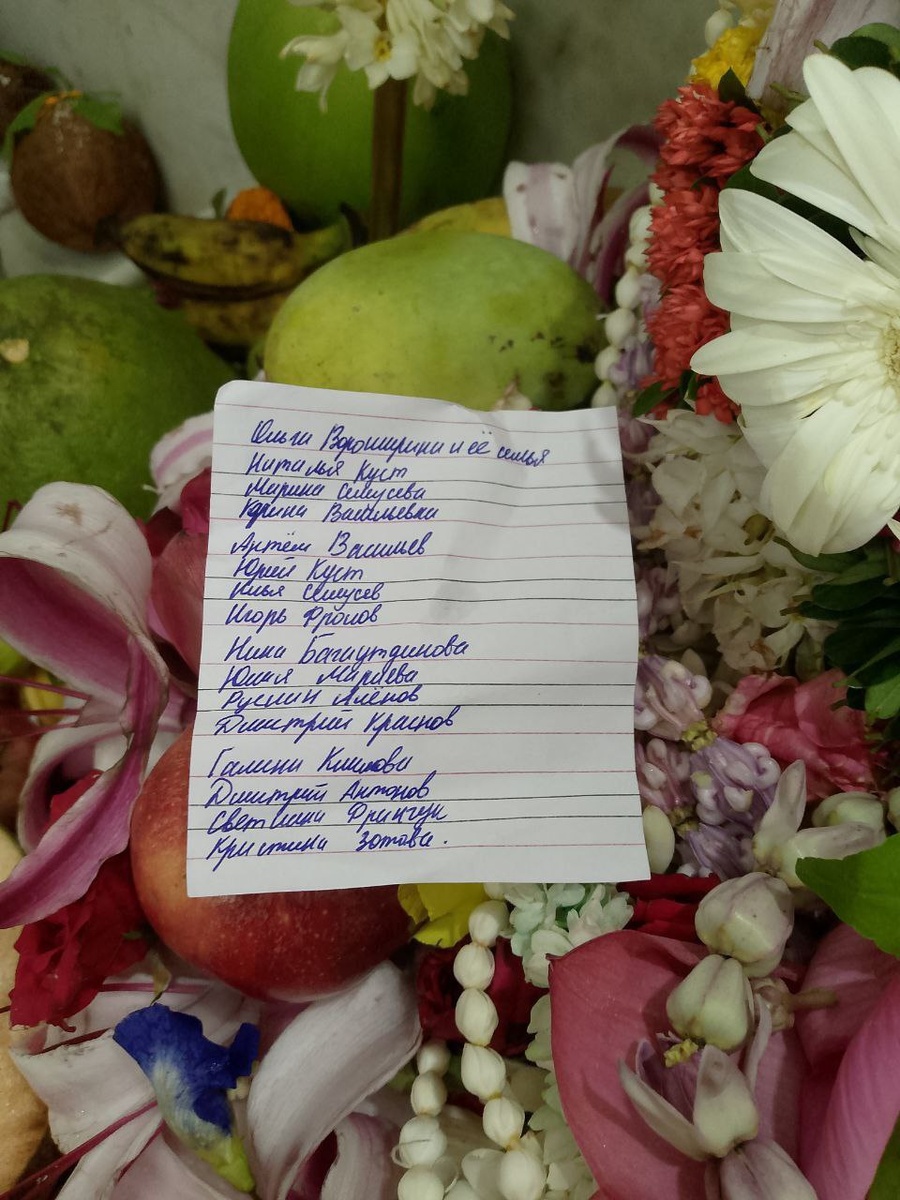 Ольга Вороширина и её семья
Наталья Куст
Марина Семусева
Ирина Васильевна
Артём Васильев
Юрий Куст
Илья Семусев
Игорь Фролов
Нина Багаутдинова
Юлия
Руслан Аленов
Дмитрий Краснов
Галина Климова
Дмитрий Антонов
Светлана Франчук
Кристина Зотова.